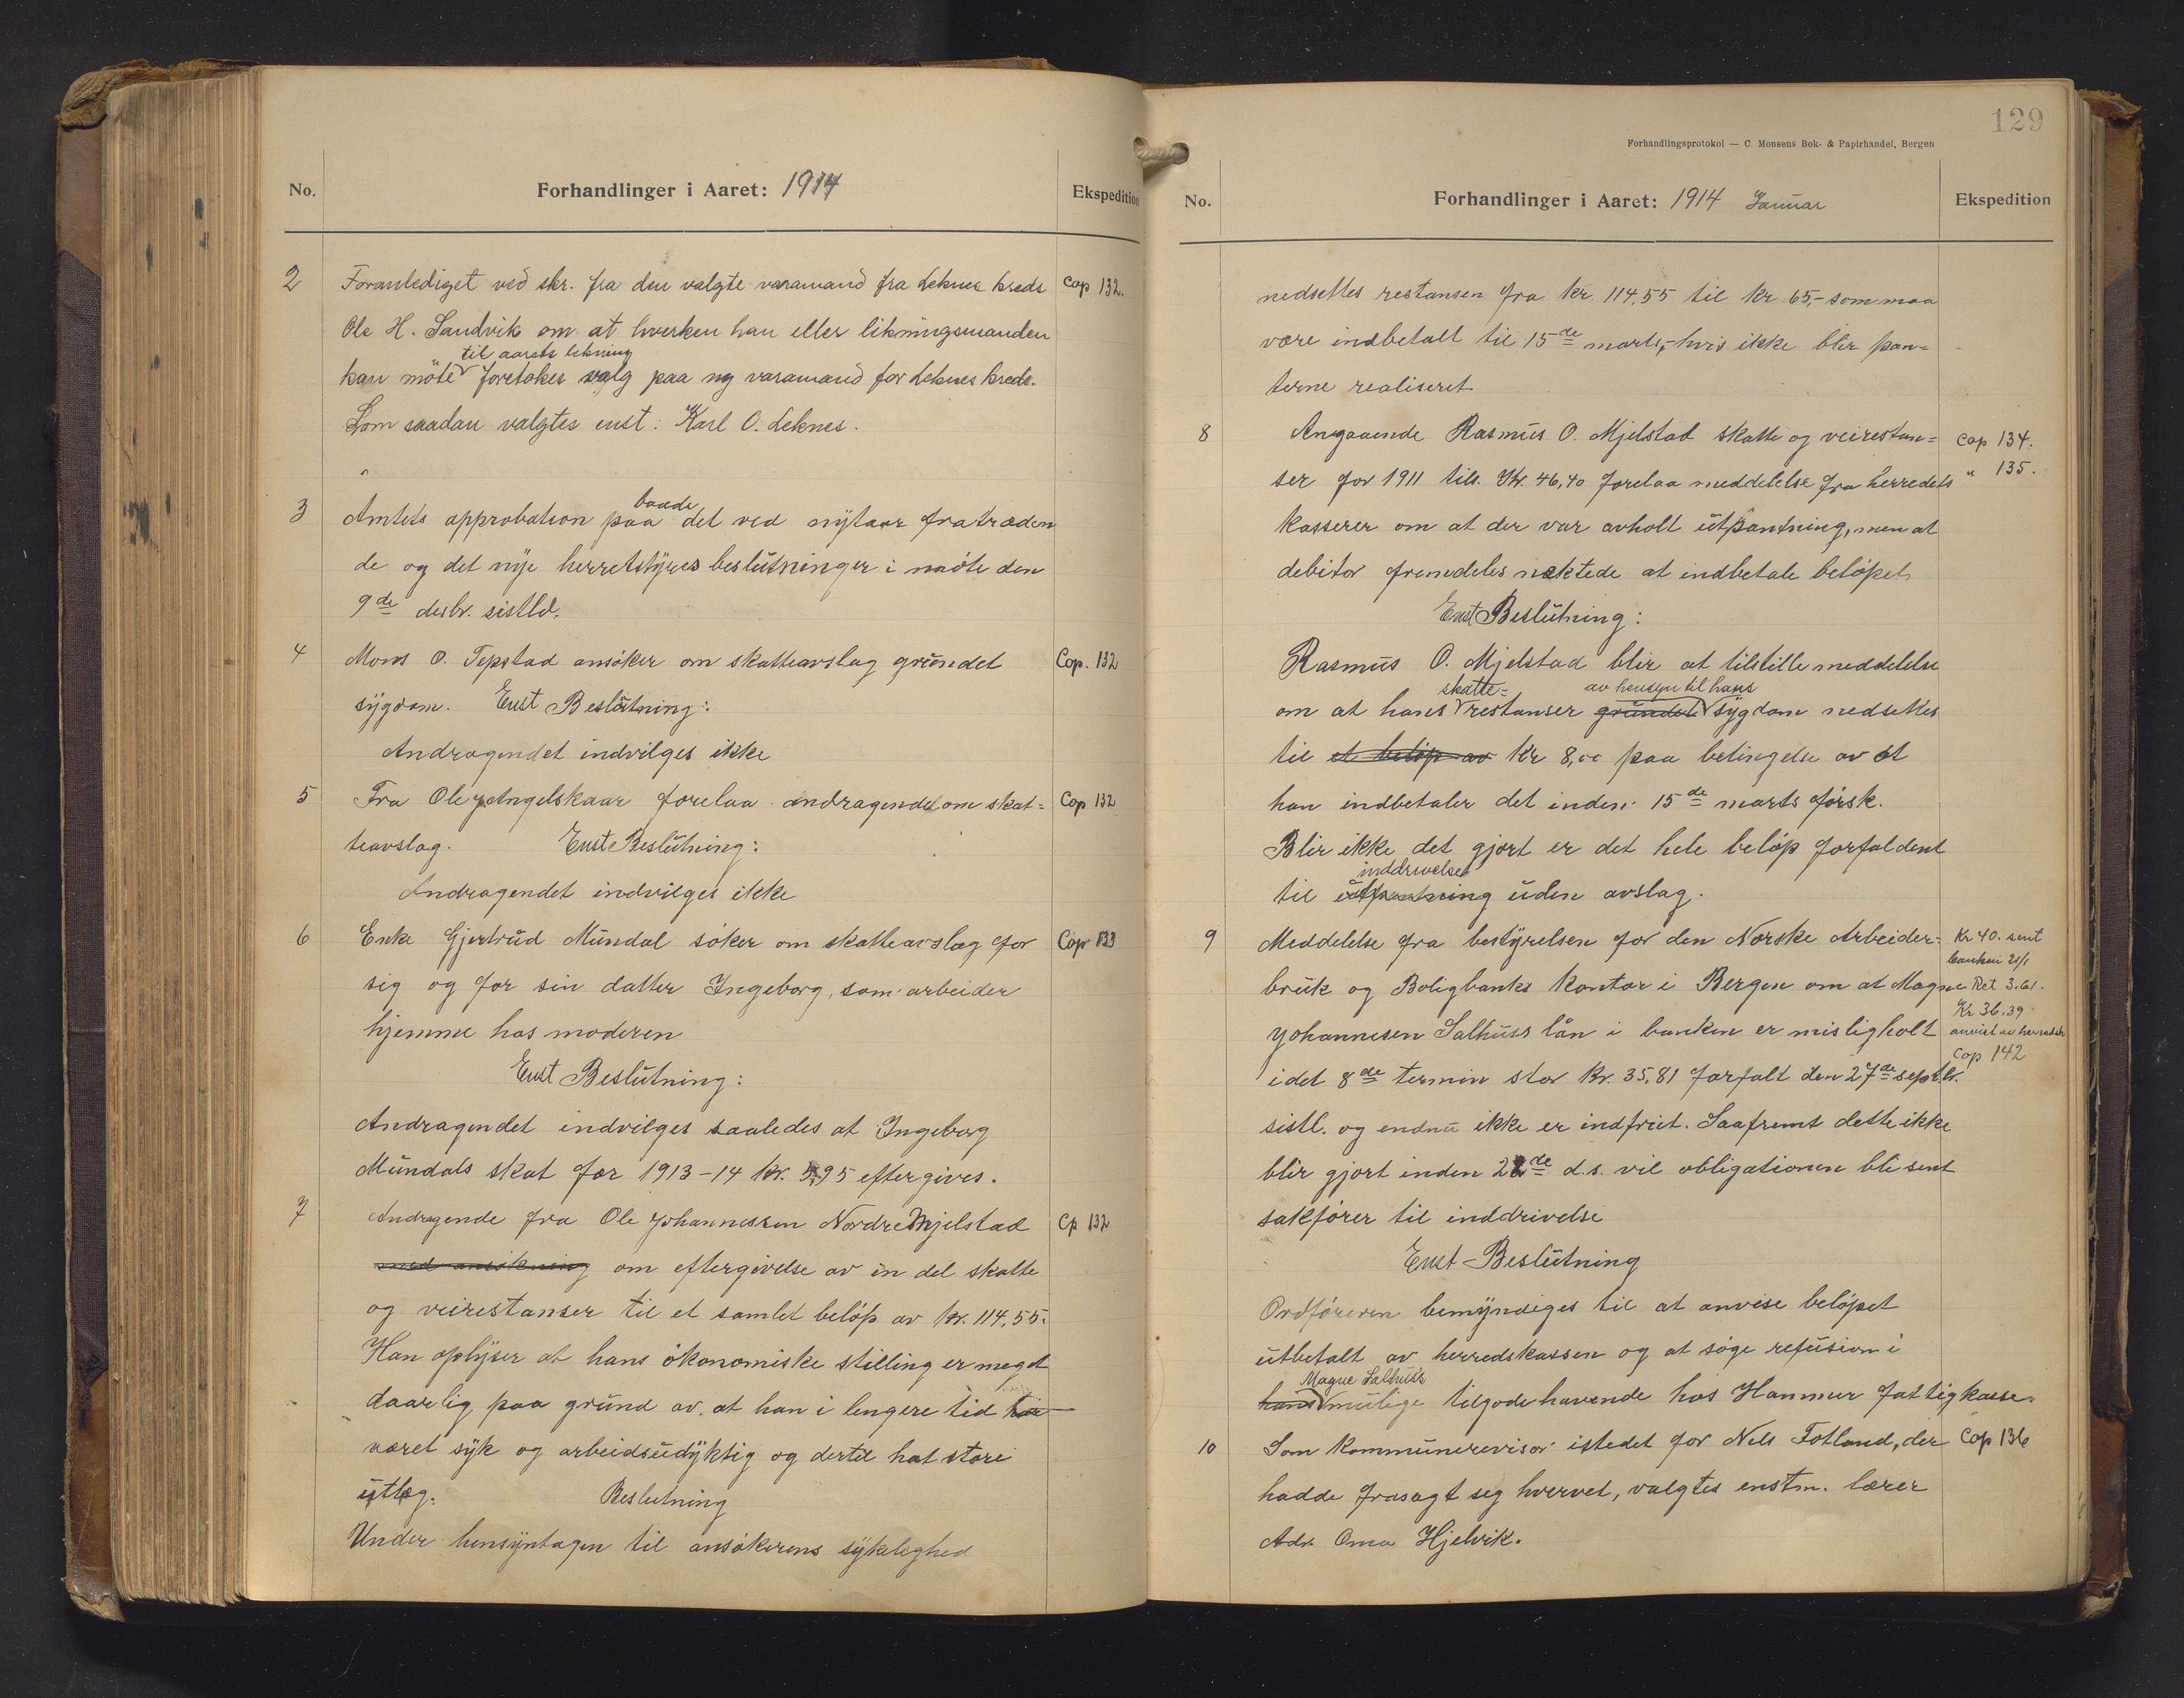 No. Forhandlinger i Aaret: 1914 Ekspedition
2 Foranlediget ved skr. fra den valgte varamand fra Leknes kreds Cop 132.
Ole H. Sandvik om at hverken han eller likningsmanden
til aarets likning
kan möte foretokes valg paa ny varamand for Leknes kreds.
Som saadan valgtes enst: Karl O. Leknes.
baade
3 Amtets approbation paa det ved nytaar fratræden
de og det nye herretstyres beslutninger i möte den
9de desbr. sistld.
4 Mons O. Tepstad ansöker om skatteavslag grundet Cop. 132
sygdom. Enst Beslutning:
Andragendet indvilges ikke
5 Fra Ole Angelskaar forelaa andragende om skat= Cop 132
teavslag. Enst Beslutning:
Andragendet indvilges ikke
6 Enke Gjertrud Mundal söker om skatteavslag for Cop 133
sig og for sin datter Ingeborg, som arbeider
hjemme hos moderen
Enst Beslutning:
Andragendet indvilges saaledes at Ingeborg
Mundals skat for 1913-14 kr. 5,95 eftergives.
7 Andragende fra Ole Johannessen Nordre Mjelstad Cp 132
med ansökning om eftergivelse av en del skatte
og veirestanser til et samlet belöp av kr. 114,55.
Han oplyser at hans ökonomiske stilling er meget
daarlig paa grund av at han i lengere tid har
været syk og arbeidsudyktig og dertil hat store
utlæg. Beslutning
Under hensyntagen til ansökerens sykelighed
129
Forhandlingsprotokol — C. Monsens Bok- & Papirhandel, Bergen
No. Forhandlinger i Aaret: 1914 Januar Ekspedition
nedsettes restansen fra kr. 114,55 til kr 65,- som maa
være indbetalt til 15de marts,- hvis ikke blir pan=
terne realiseret
8 Angaaende Rasmus O. Mjelstad skatte og veirestan= Cop 134.
ser for 1911 tils. Kr. 46,40 forelaa meddelelse fra herredets " 135.
kasserer om at der var avholt utpantning, men at
debitor fremdeles nektede at indbetale belöpet
Enst Beslutning:
Rasmus O. Mjelstad blir at tilstille meddelelse
skatte= av hensyn til hans
om at hans restanser grundet sygdom nedsettes
til et belöp av Kr 8,00 paa betingelse av at
han indbetaler det inden 15de marts försk.
Blir ikke det gjort er det hele belöp forfaldent
inddrivelse
til utpantning uden avslag.
9 Meddelelse fra bestyrelsen for den Norske Arbeider= Kr 40. sent
banken 21/1
bruk og Boligbanks kontor i Bergen om at Magne Ret 3.61.
Kr 36.39
Yohannesen Salhuss lån i banken er misligholt anvist av herredsk
Cop 142
idet 8de termin stor Kr. 35,81 forfalt den 27de septbr.
sistl. og endnu ikke er indfriet. Saafremt dette ikke
blir gjort inden 22de d.s. vil obligationen bli sent
sakförer til inddrivelse
Enst Beslutning
Ordföreren bemyndiges til at anvise belöpet
utbetalt av herredskassen og at söge refusion i
Magne Salhus's
hans mulige tilgodehavende hos Hammer fattigkasse.
10 Som kommunerevisor istedet for Nels Fotland, der Cop 136
hadde frasagt seg hvervet, valgtes enstm. lærer
Adr. Oma Hjelvik.